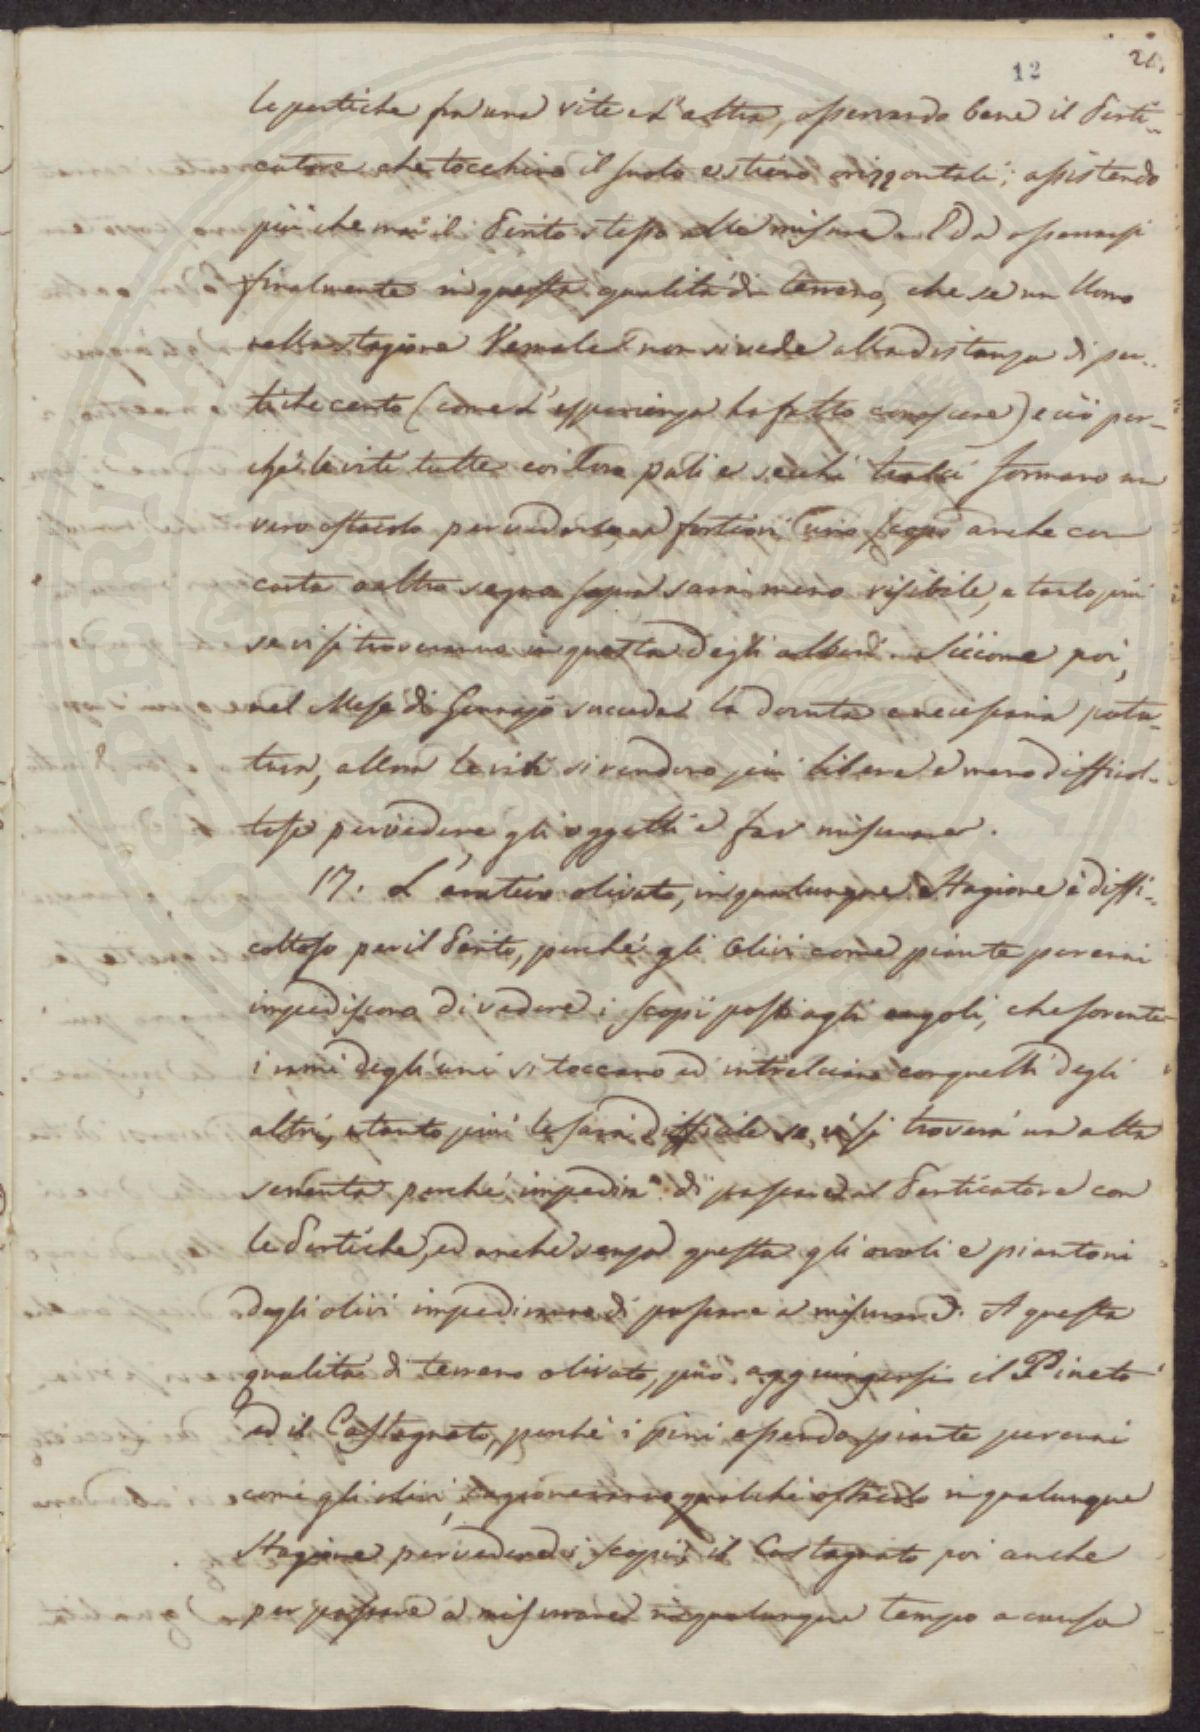 12
21.
le pertiche fra una vite e l'altra, osservando bene il Perti-
catore che tocchino il suolo e stieno orizzontali; assistendo
più che mai il Perito stesso alle misure. Eda osservarsi
finalmente in questa qualità di terreno, che se un Uomo
nella stagione Vernale non si vede alla distanza di per-
tiche cento (come l'esperienza ha fatto conoscere) e ciò per-
chè le viti tutte coi loro pali e secchi tralci formano un
vero ostacolo per vederlo, a fortiori uno scopo anche con
carta o altro segno sopra sarà meno visibile, e tanto più
se vi si troveranno in questa degli alberi. Siccome poi,
nel Mese di Gennajo succede la dovuta e necessaria pota-
tura, allora le viti si rendono più libere e meno difficol-
tose per vedere gli oggetti e far misurare.
17. L'arativo olivato, in qualunque Stagione è diffi-
coltoso per il Perito, perchè gli Olivi come piante perenni
impediscono di vedere i scopi posti agli angoli, che sovente
i rami degli uni si toccano ed intralciano con quelli degli
altri, e tanto più le sarà difficile se vi si troverà un alta
sementa perchè impedirà di passare al Perticatore con
le Pertiche, ed anche senza questa gli ovoli e piantoni
degli olivi impediranno di passare a misurare. A questa
qualità di terreno olivato, può aggiungersi il Pineto
ed il Castagnato, perchè i pini essendo piante perenni
come gli olivi, cagioneranno qualche ostacolo in qualunque
Stagione per vedere i scopi; il Castagnato poi anche
per passare a misurare in qualunque tempo a causa